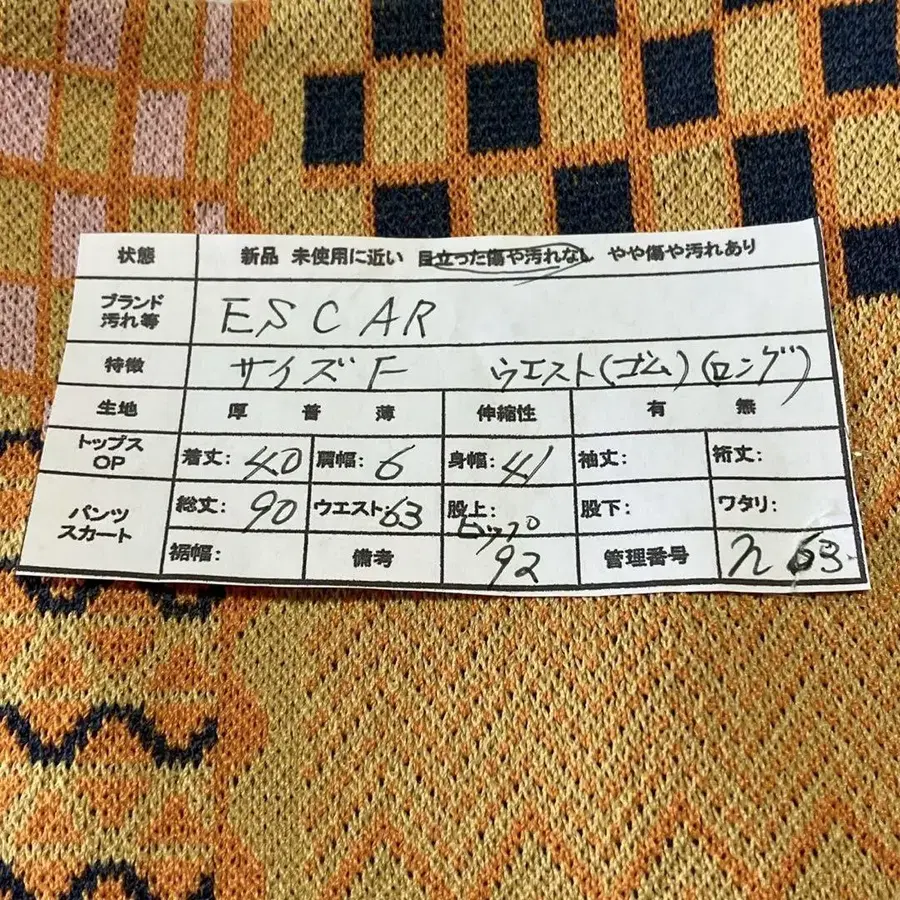 状態 新品 未使用に近い 目立った傷や汚れなし やや傷や汚れあり
ブランド 汚れ等 ESCAR
特徴 サイズF ウエスト(ゴム)(ロング)
生地 厚 普 薄 伸縮性 有 無
トップス OP 着丈: 40 肩幅: 6 身幅: 41 袖丈: 裄丈:
パンツ スカート 総丈: 90 ウエスト: 63 股上: 股下: ワタリ:
ヒップ
裾幅: 備考 92 管理番号 n 63